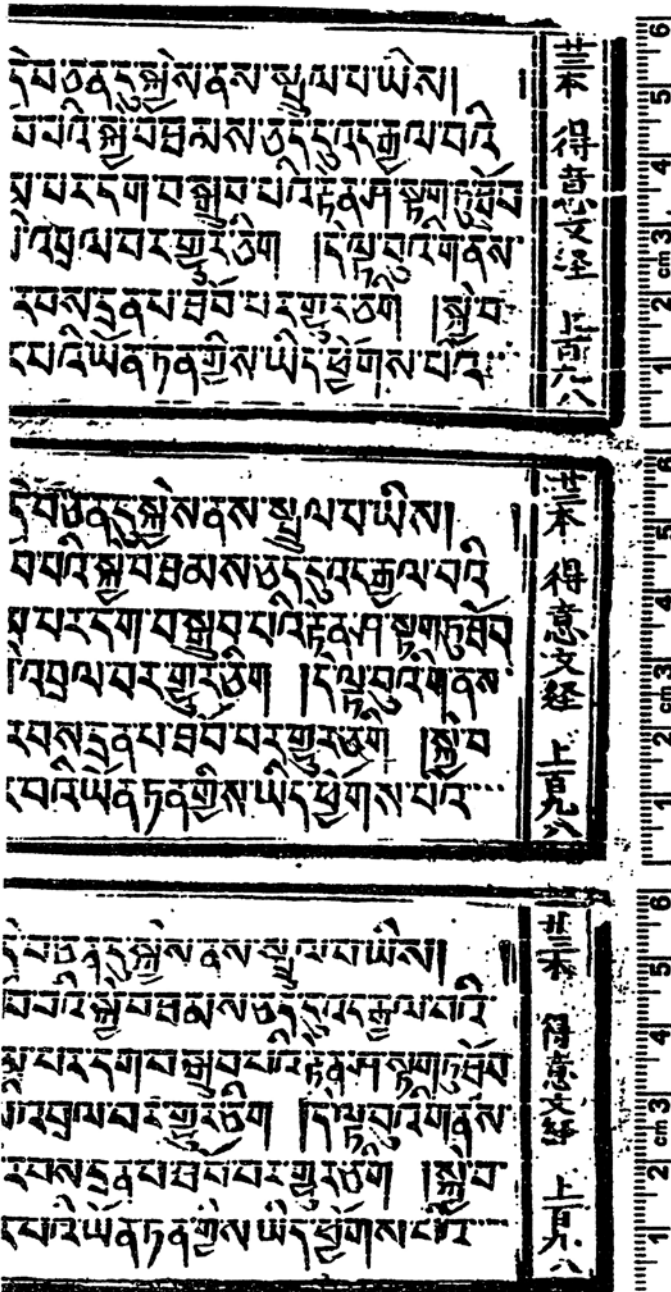 དེ་བ་ཅན་དུ་སྐྱེས་ནས་སྤྲུལ་པ་ཡིས། །
བ་པའི་སྐྱེ་བ་ཐམས་ཅད་དུ་འང་རྒྱལ་བའི
པར་དག་བསྒྲུབ་པའི་རྟེན་ཤ་སྟག་ཏུ་ཐོབ
འབྲལ་བར་གྱུར་ཅིག །དེ་ལྟ་བུའི་གནས་
རབས་དྲན་པ་ཐོབ་པར་གྱུར་ཅིག །སྐྱེ་བ
པའི་ཡོན་ཏན་གྱིས་ཡིད་ཕྱོགས་པའི་་་
廿三本 得意文经 上百六八
6
5
4
3
cm
2
1
དེ་བ་ཅན་དུ་སྐྱེས་ནས་སྤྲུལ་པ་ཡིས། །
བ་པའི་སྐྱེ་བ་ཐམས་ཅད་དུ་འང་རྒྱལ་བའི
པར་དག་བསྒྲུབ་པའི་རྟེན་ཤ་སྟག་ཏུ་ཐོབ
འབྲལ་བར་གྱུར་ཅིག །དེ་ལྟ་བུའི་གནས་
རབས་དྲན་པ་ཐོབ་པར་གྱུར་ཅིག །སྐྱེ་བ
པའི་ཡོན་ཏན་གྱིས་ཡིད་ཕྱོགས་པའི་་་
廿三本 得意文経 上百九八
6
5
4
3
cm
2
1
དེ་བ་ཅན་དུ་སྐྱེས་ནས་སྤྲུལ་པ་ཡིས། །
བ་པའི་སྐྱེ་བ་ཐམས་ཅད་དུ་འང་རྒྱལ་བའི
པར་དག་བསྒྲུབ་པའི་རྟེན་ཤ་སྟག་ཏུ་ཐོབ
འབྲལ་བར་གྱུར་ཅིག །དེ་ལྟ་བུའི་གནས་
རབས་དྲན་པ་ཐོབ་པར་གྱུར་ཅིག །སྐྱེ་བ
པའི་ཡོན་ཏན་གྱིས་ཡིད་ཕྱོགས་པའི་་་
廿三本 得意文経 上百八
6
5
4
3
cm
2
1